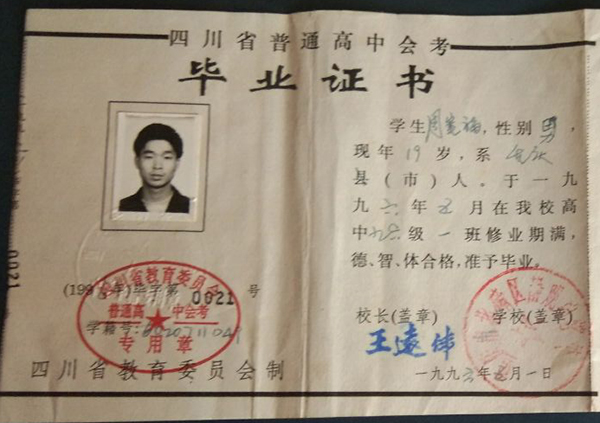 四川省普通高中会考
毕业证书
学生周 福,性别男,
现年19岁,系
县(市)人。于一九
九六年 月在我校高
中 级一班修业期满,
德、智、体合格,准予毕业。
校长(盖章) 学校(盖章)
王远
一九九 年 月一日
0021
四川省教育委员会
(199 年)毕字第0021号
普通高中会考
学籍号:
专用章
四川省教育委员会制